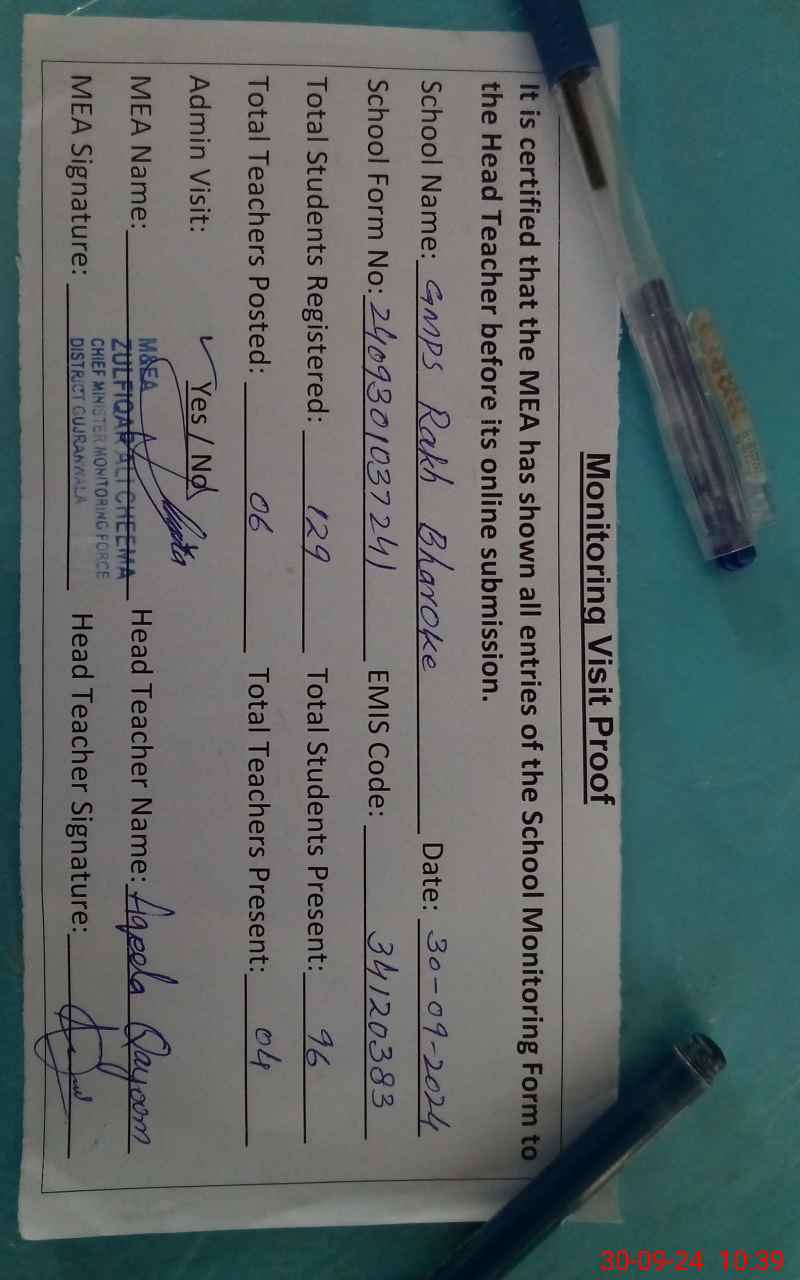 Monitoring Visit Proof
It is certified that the MEA has shown all entries of the School Monitoring Form to
the Head Teacher before its online submission.
School Name: GMPS Rakh Bharoke Date: 30-09-2024
School Form No: 2409301037241 EMIS Code: 34120383
Total Students Registered: 129 Total Students Present: 96
Total Teachers Posted: 06 Total Teachers Present: 04
Admin Visit: ✓ Yes / No
MEA Name: M&EA ZULFIQAR ALI CHEEMA Head Teacher Name: Aqeela Qayoom
CHIEF MINISTER MONITORING FORCE
MEA Signature: DISTRICT GUJRANWALA Head Teacher Signature:
30-09-24 10:39